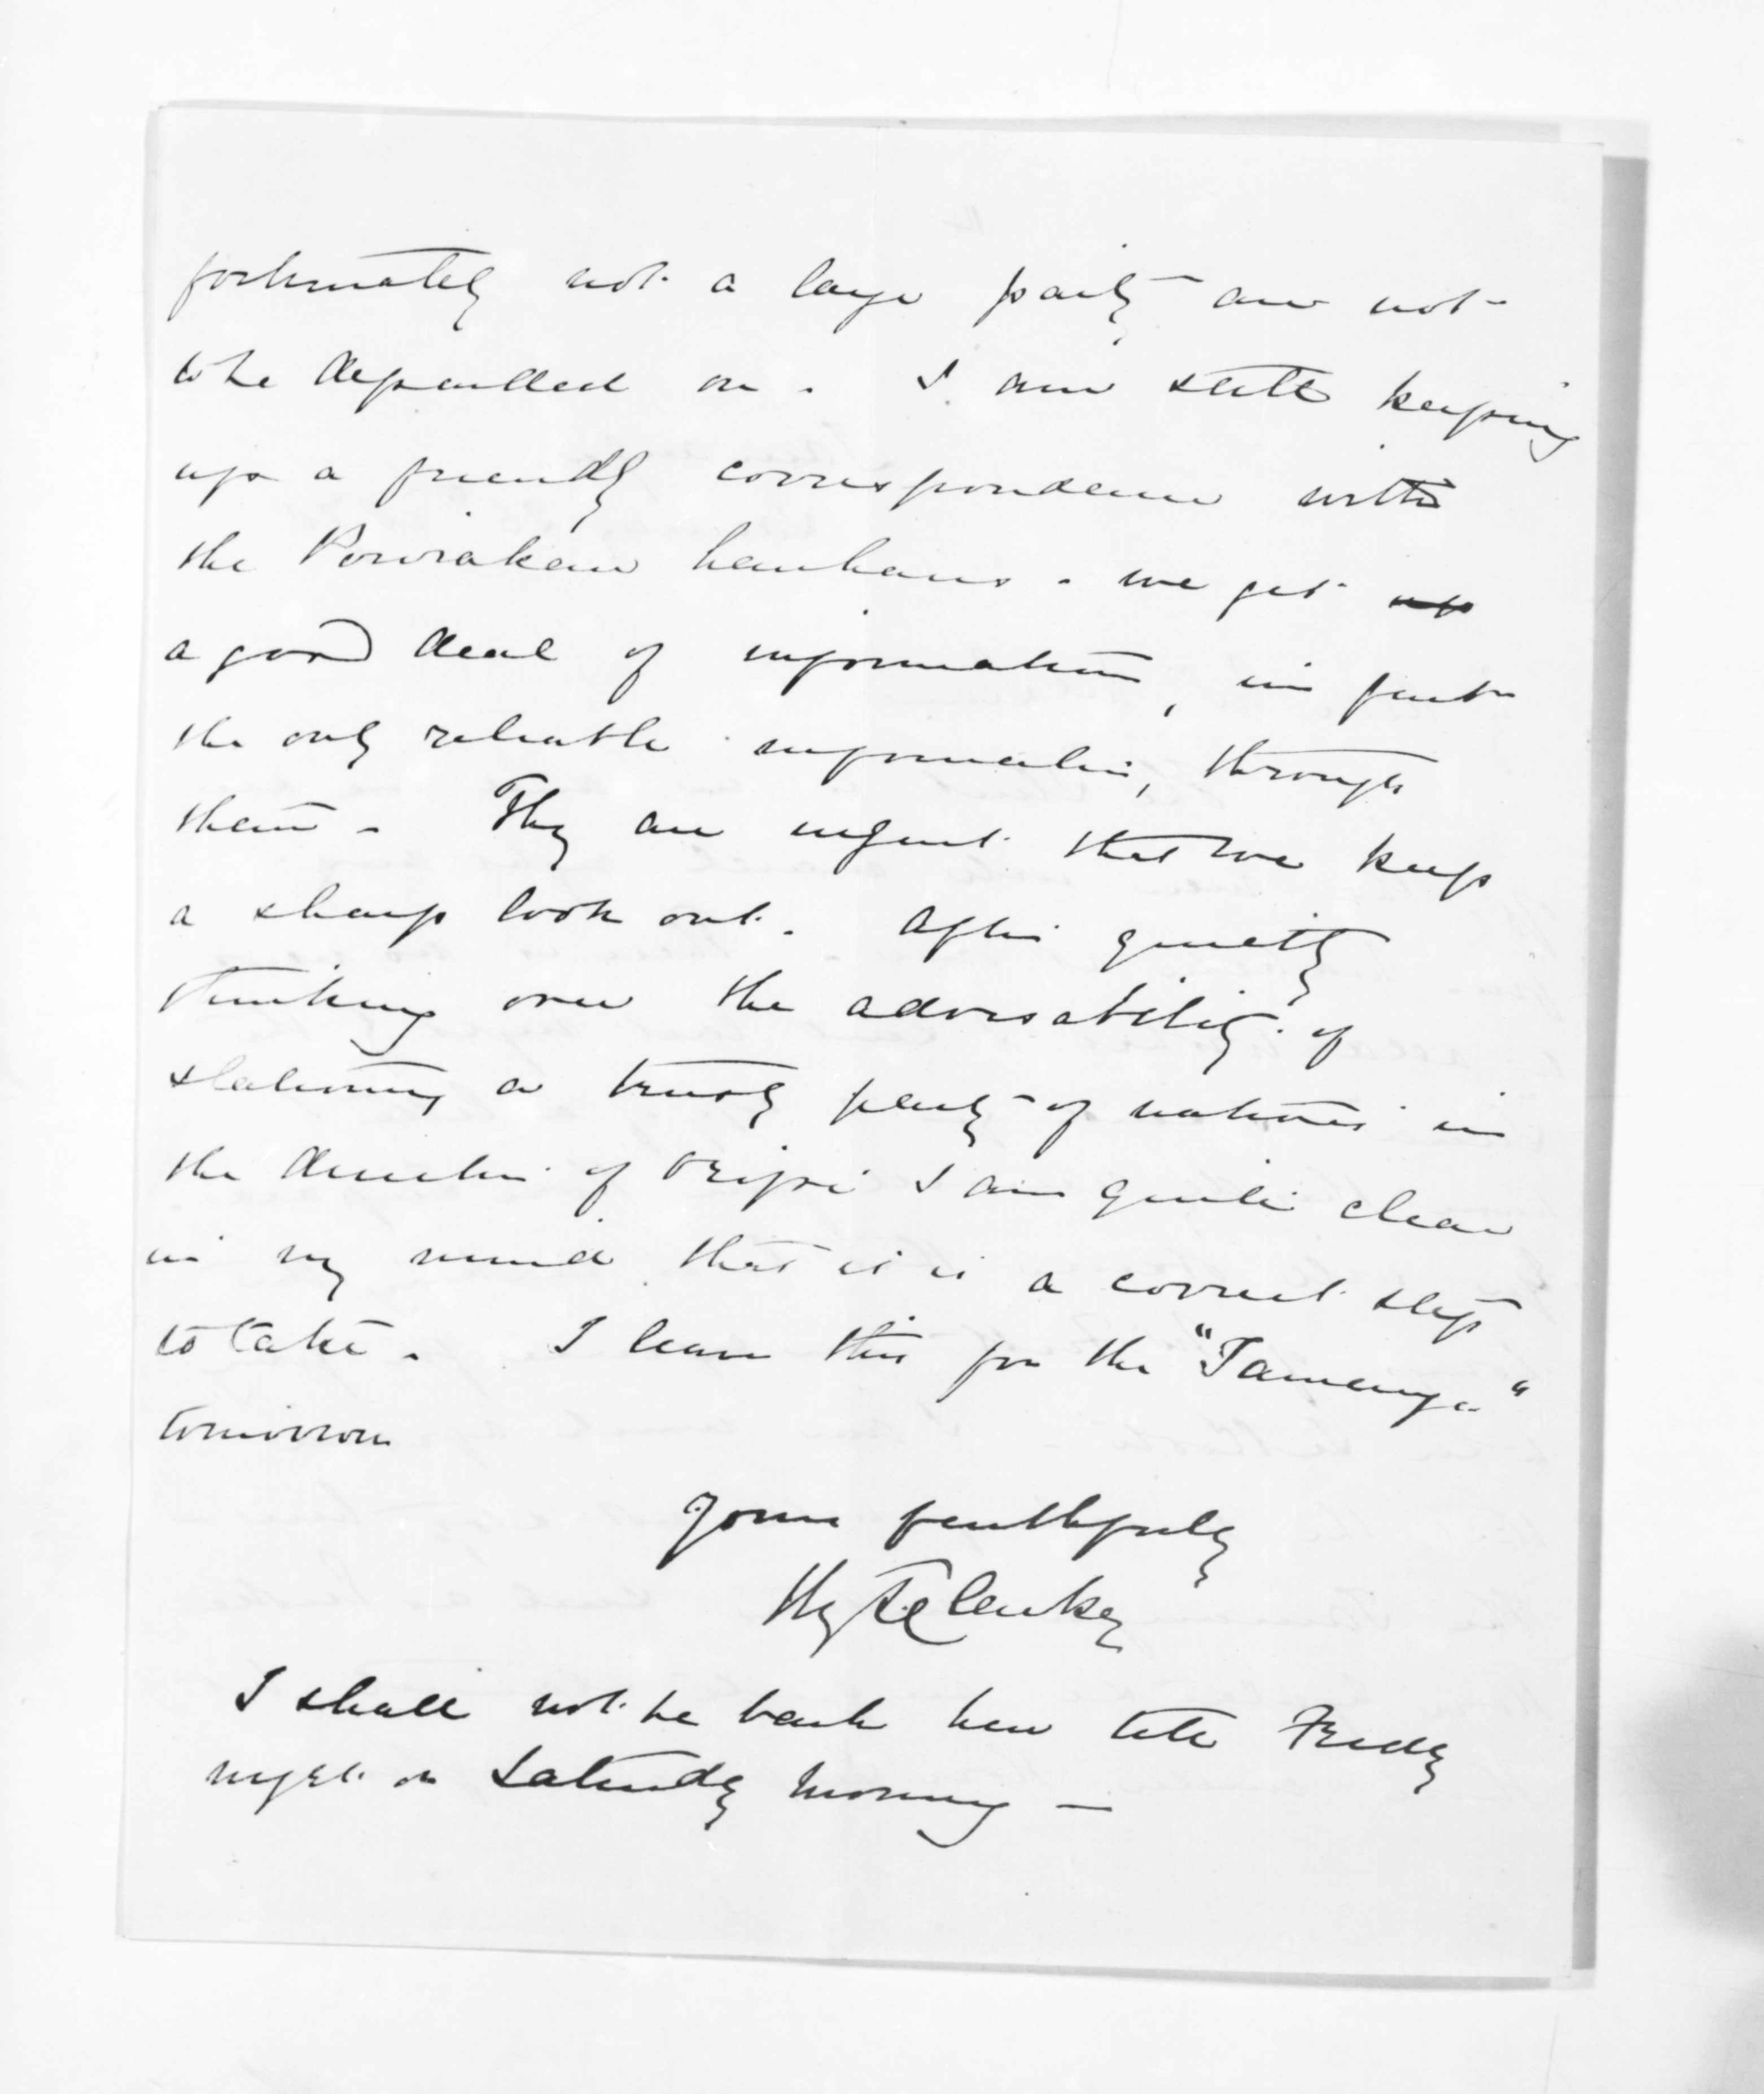 fortunately not a large party are not
to be depended on. I am still keeping
up a friendly correspondence with
the Powiakau hauhaus. we get up
a good deal of information, in fact
the only reliable information, through
them. They are urgent that we keep
a sharp look out. After quietly
thinking over the advisability of
stationing a trusty party of natives in
the direction of Oripi I am quite clear
in my mind that it is a correct step
to take. I leave this for the "Tauranga"
tomorrow
Yours faithfully
Hy T Clarke
I shall not be back here till Friday
night or Saturday morning —